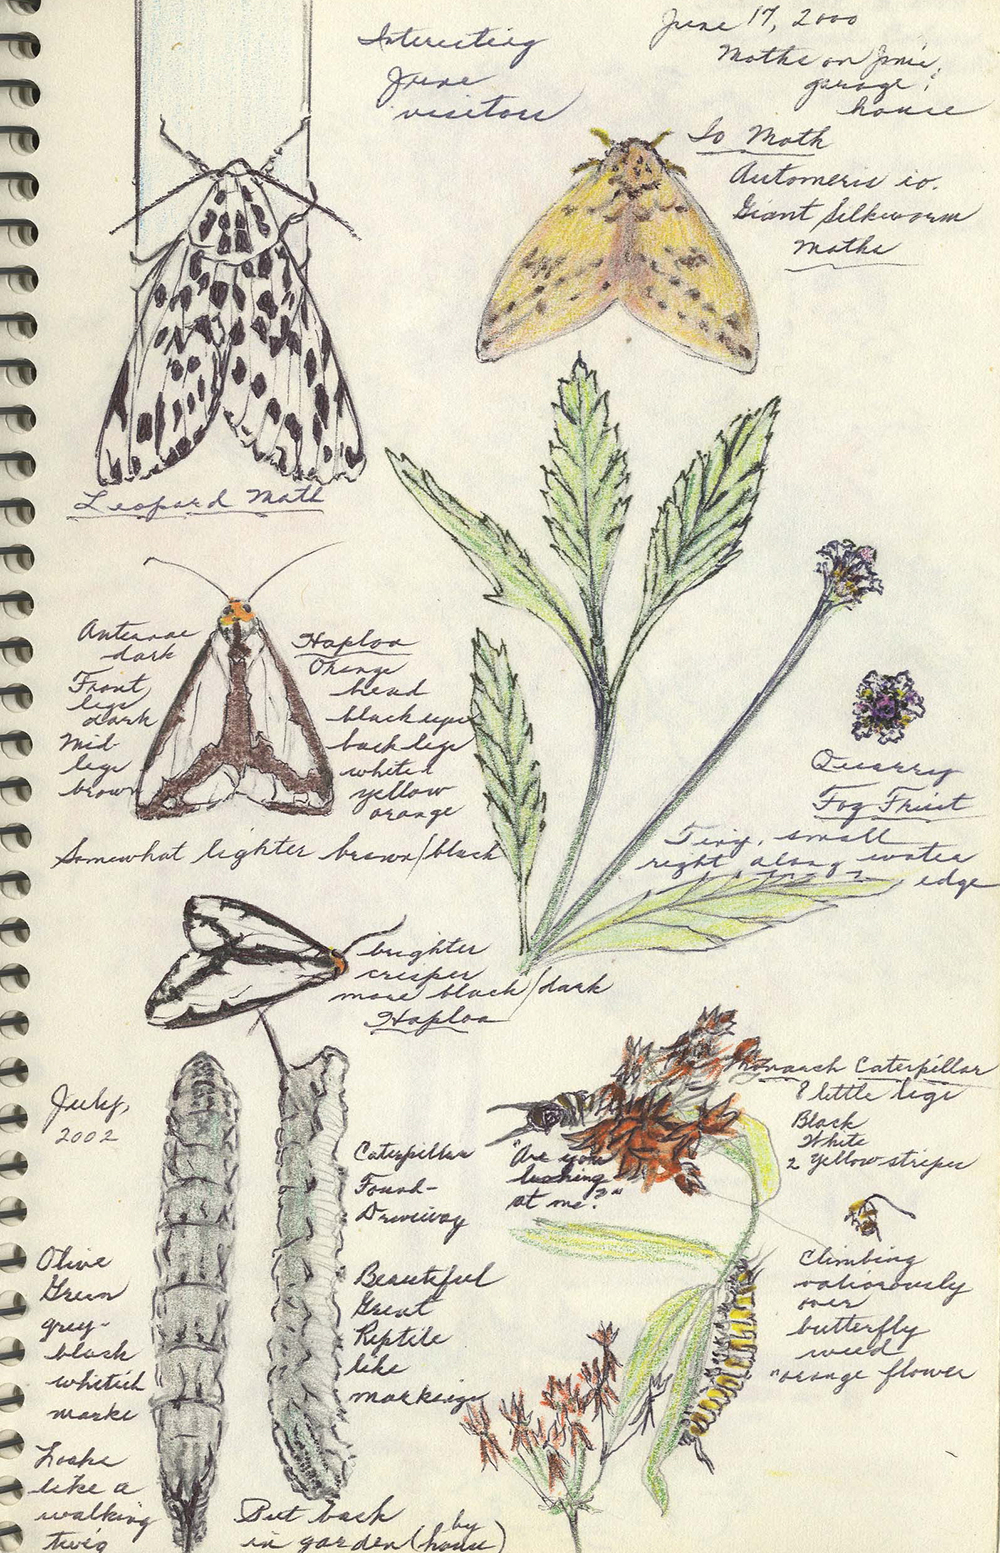 Interesting
June
visitors
June 17, 2000
Moths on
garage,
house
Io Moth
Automeris io.
Giant Silkworm
Moths
Leopard Moth
Antennae
dark
Front
legs
dark
Mid-
legs
brown
Haploa
Orange
head
black eyes
back legs
white
yellow
orange
Somewhat lighter brown/black
Quarry
Fog Fruit
Tiny, small
right along water
edge
brighter
crisper
more black/dark
Haploa
July,
2002
Caterpillar
Found-
Driveway
Olive
Green
grey-
black
whitish
marks
Looks
like a
walking
twig
Beautiful
Great
Reptile
like
markings
Put back
in garden (by house)
Monarch Caterpillar
8 little legs
Black
White
2 Yellow stripes
"Are you
looking
at me?"
Climbing
over
butterfly
weed
"orange flower